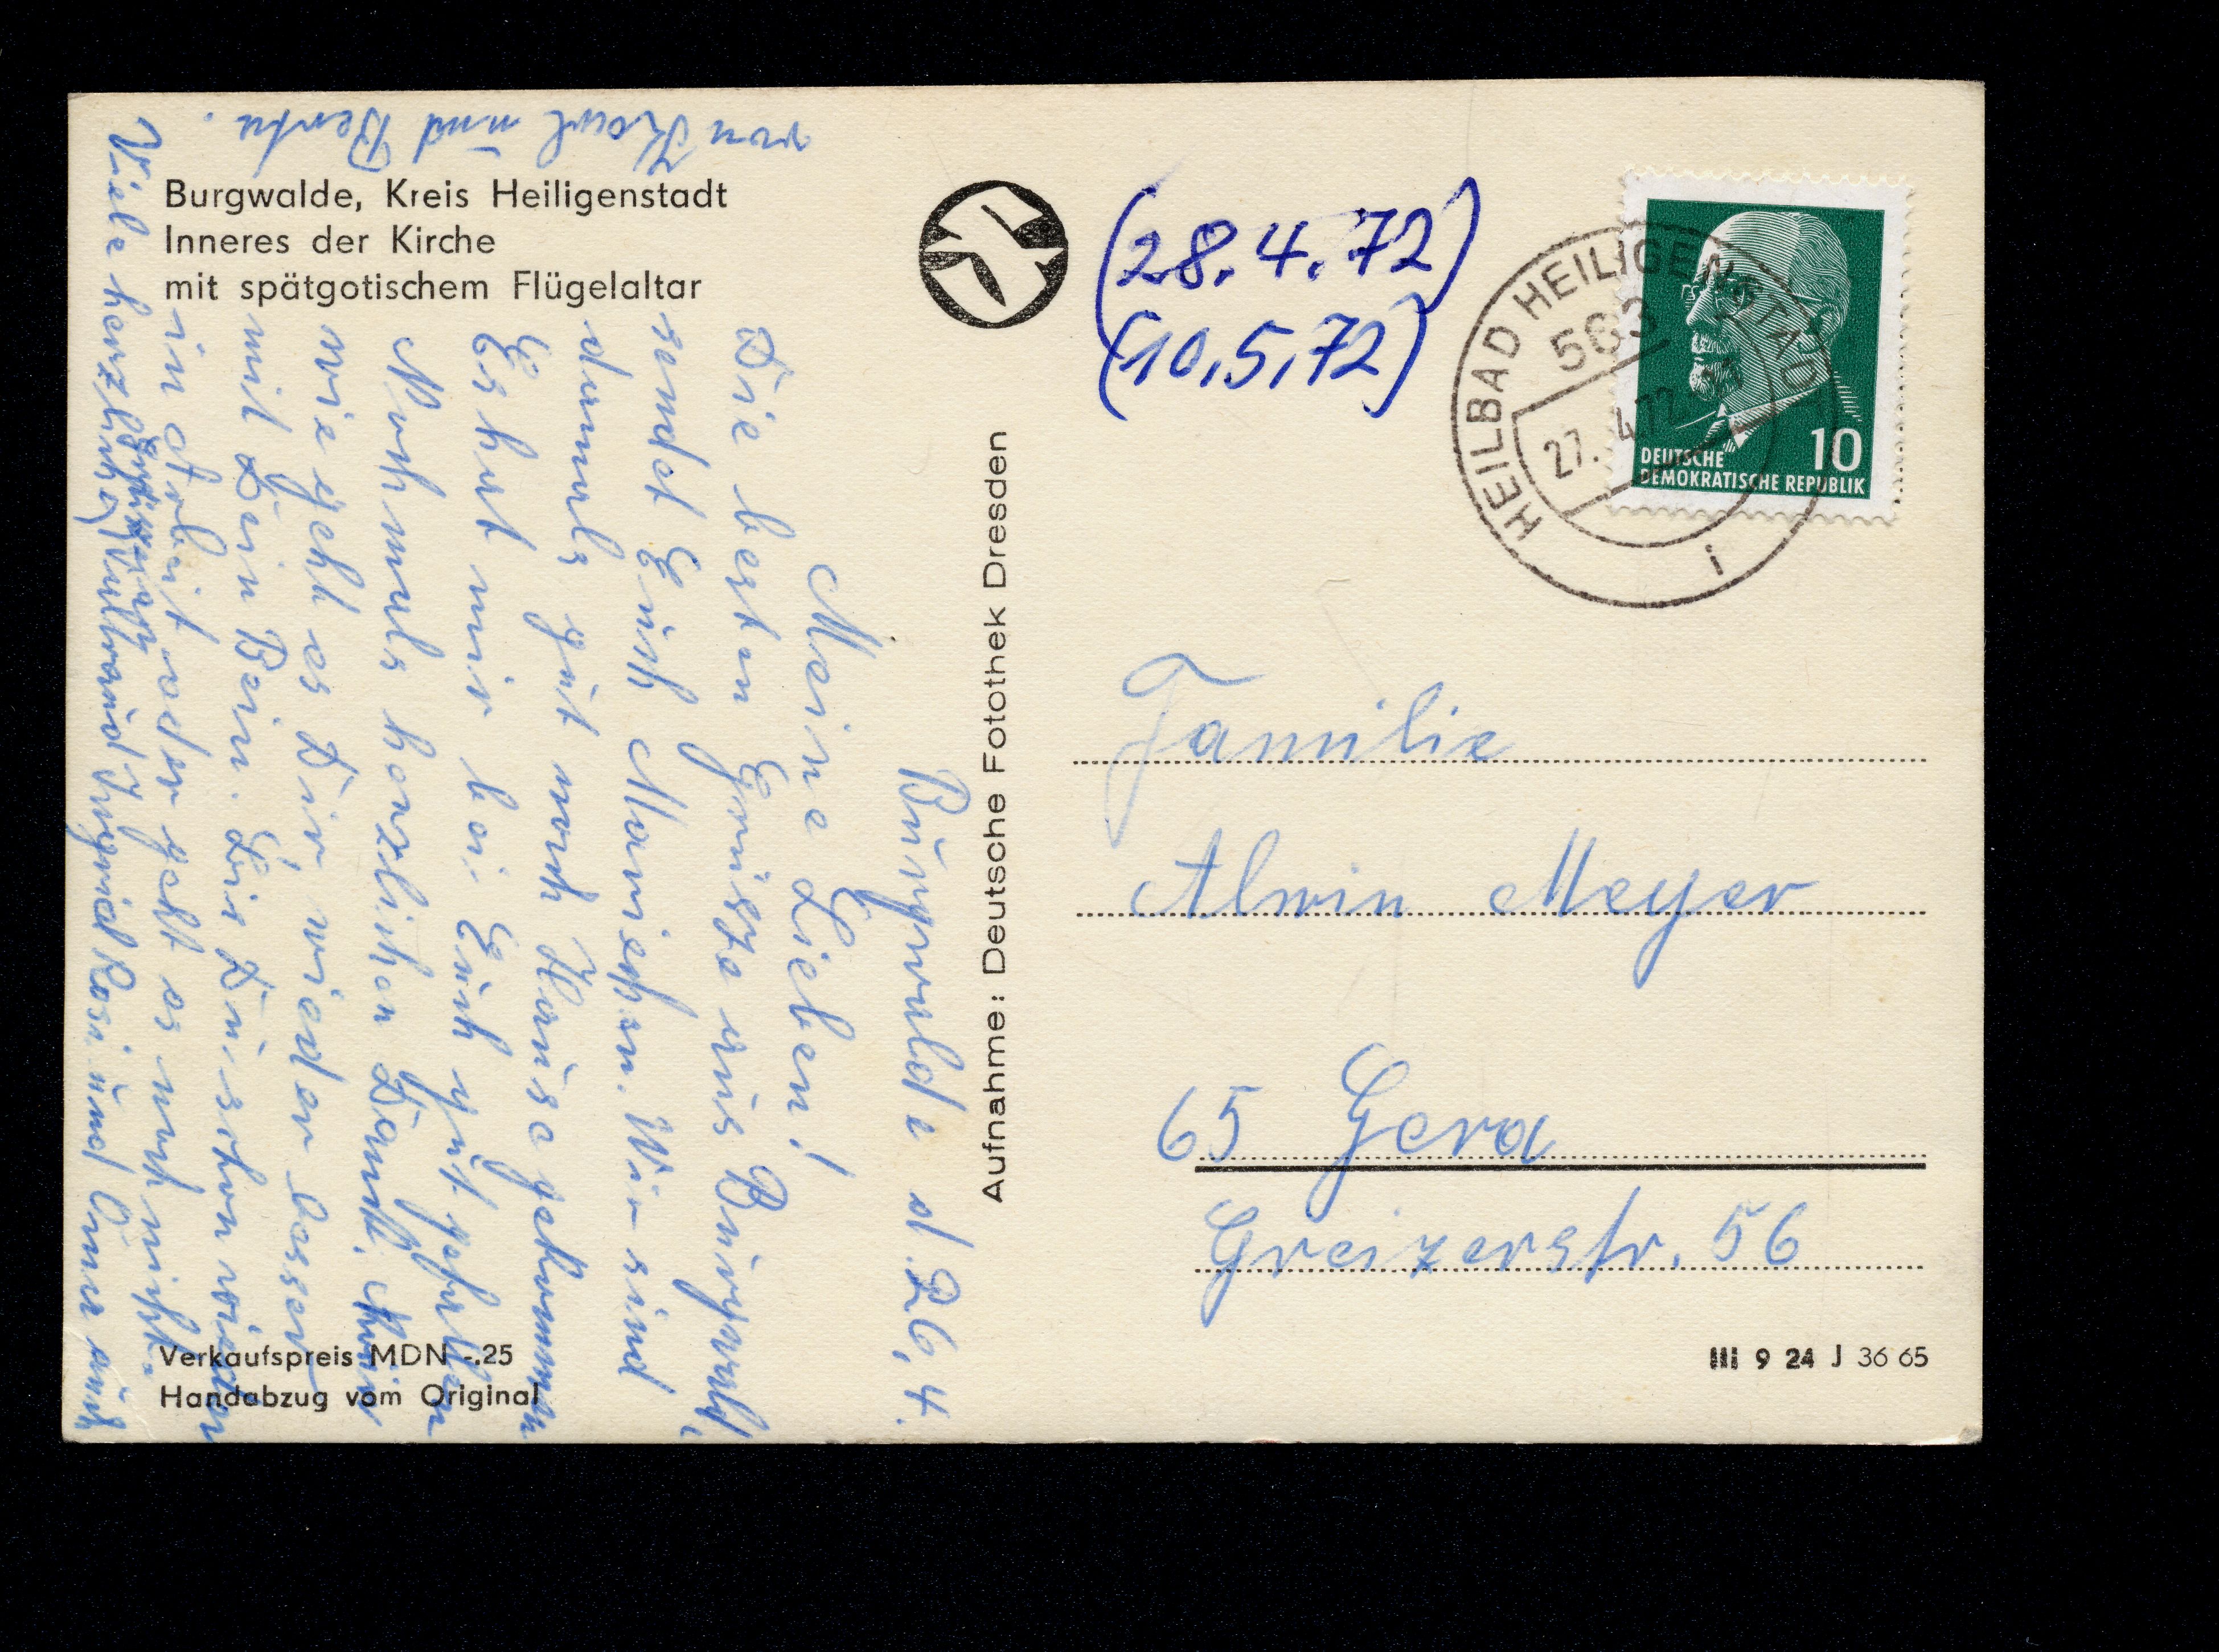 Burgwalde, Kreis Heiligenstadt
Inneres der Kirche
mit spätgotischem Flügelaltar
Burgwalde d. 26.4.
Meine Lieben!
Die besten Grüsse aus Burgwald,
sendet Euch Mariechen. Wir sind
damals gut nach Hause gekommen
Es hat mir bei Euch gut gefallen
Nochmals herzlichen Dank. Alwin
wie geht es Dir, wieder besser
mit Dein Bein. Bis Du schon wieder
in Arbeit oder geht es noch nicht.
Viele herzliche Grüsse an Waltraud Ingrid Rosi und Oma auch
von Karl und Berta.
Aufnahme: Deutsche Fotothek Dresden
(28.4.72)
(10.5.72)
HEILBAD HEILIGENSTADT
563
27.4.72
i
10
DEUTSCHE
DEMOKRATISCHE REPUBLIK
Familie
Alwin Meyer
65 Gera
Greizerstr. 56
Verkaufspreis MDN -.25
Handabzug vom Original
III 9 24 J 36 65